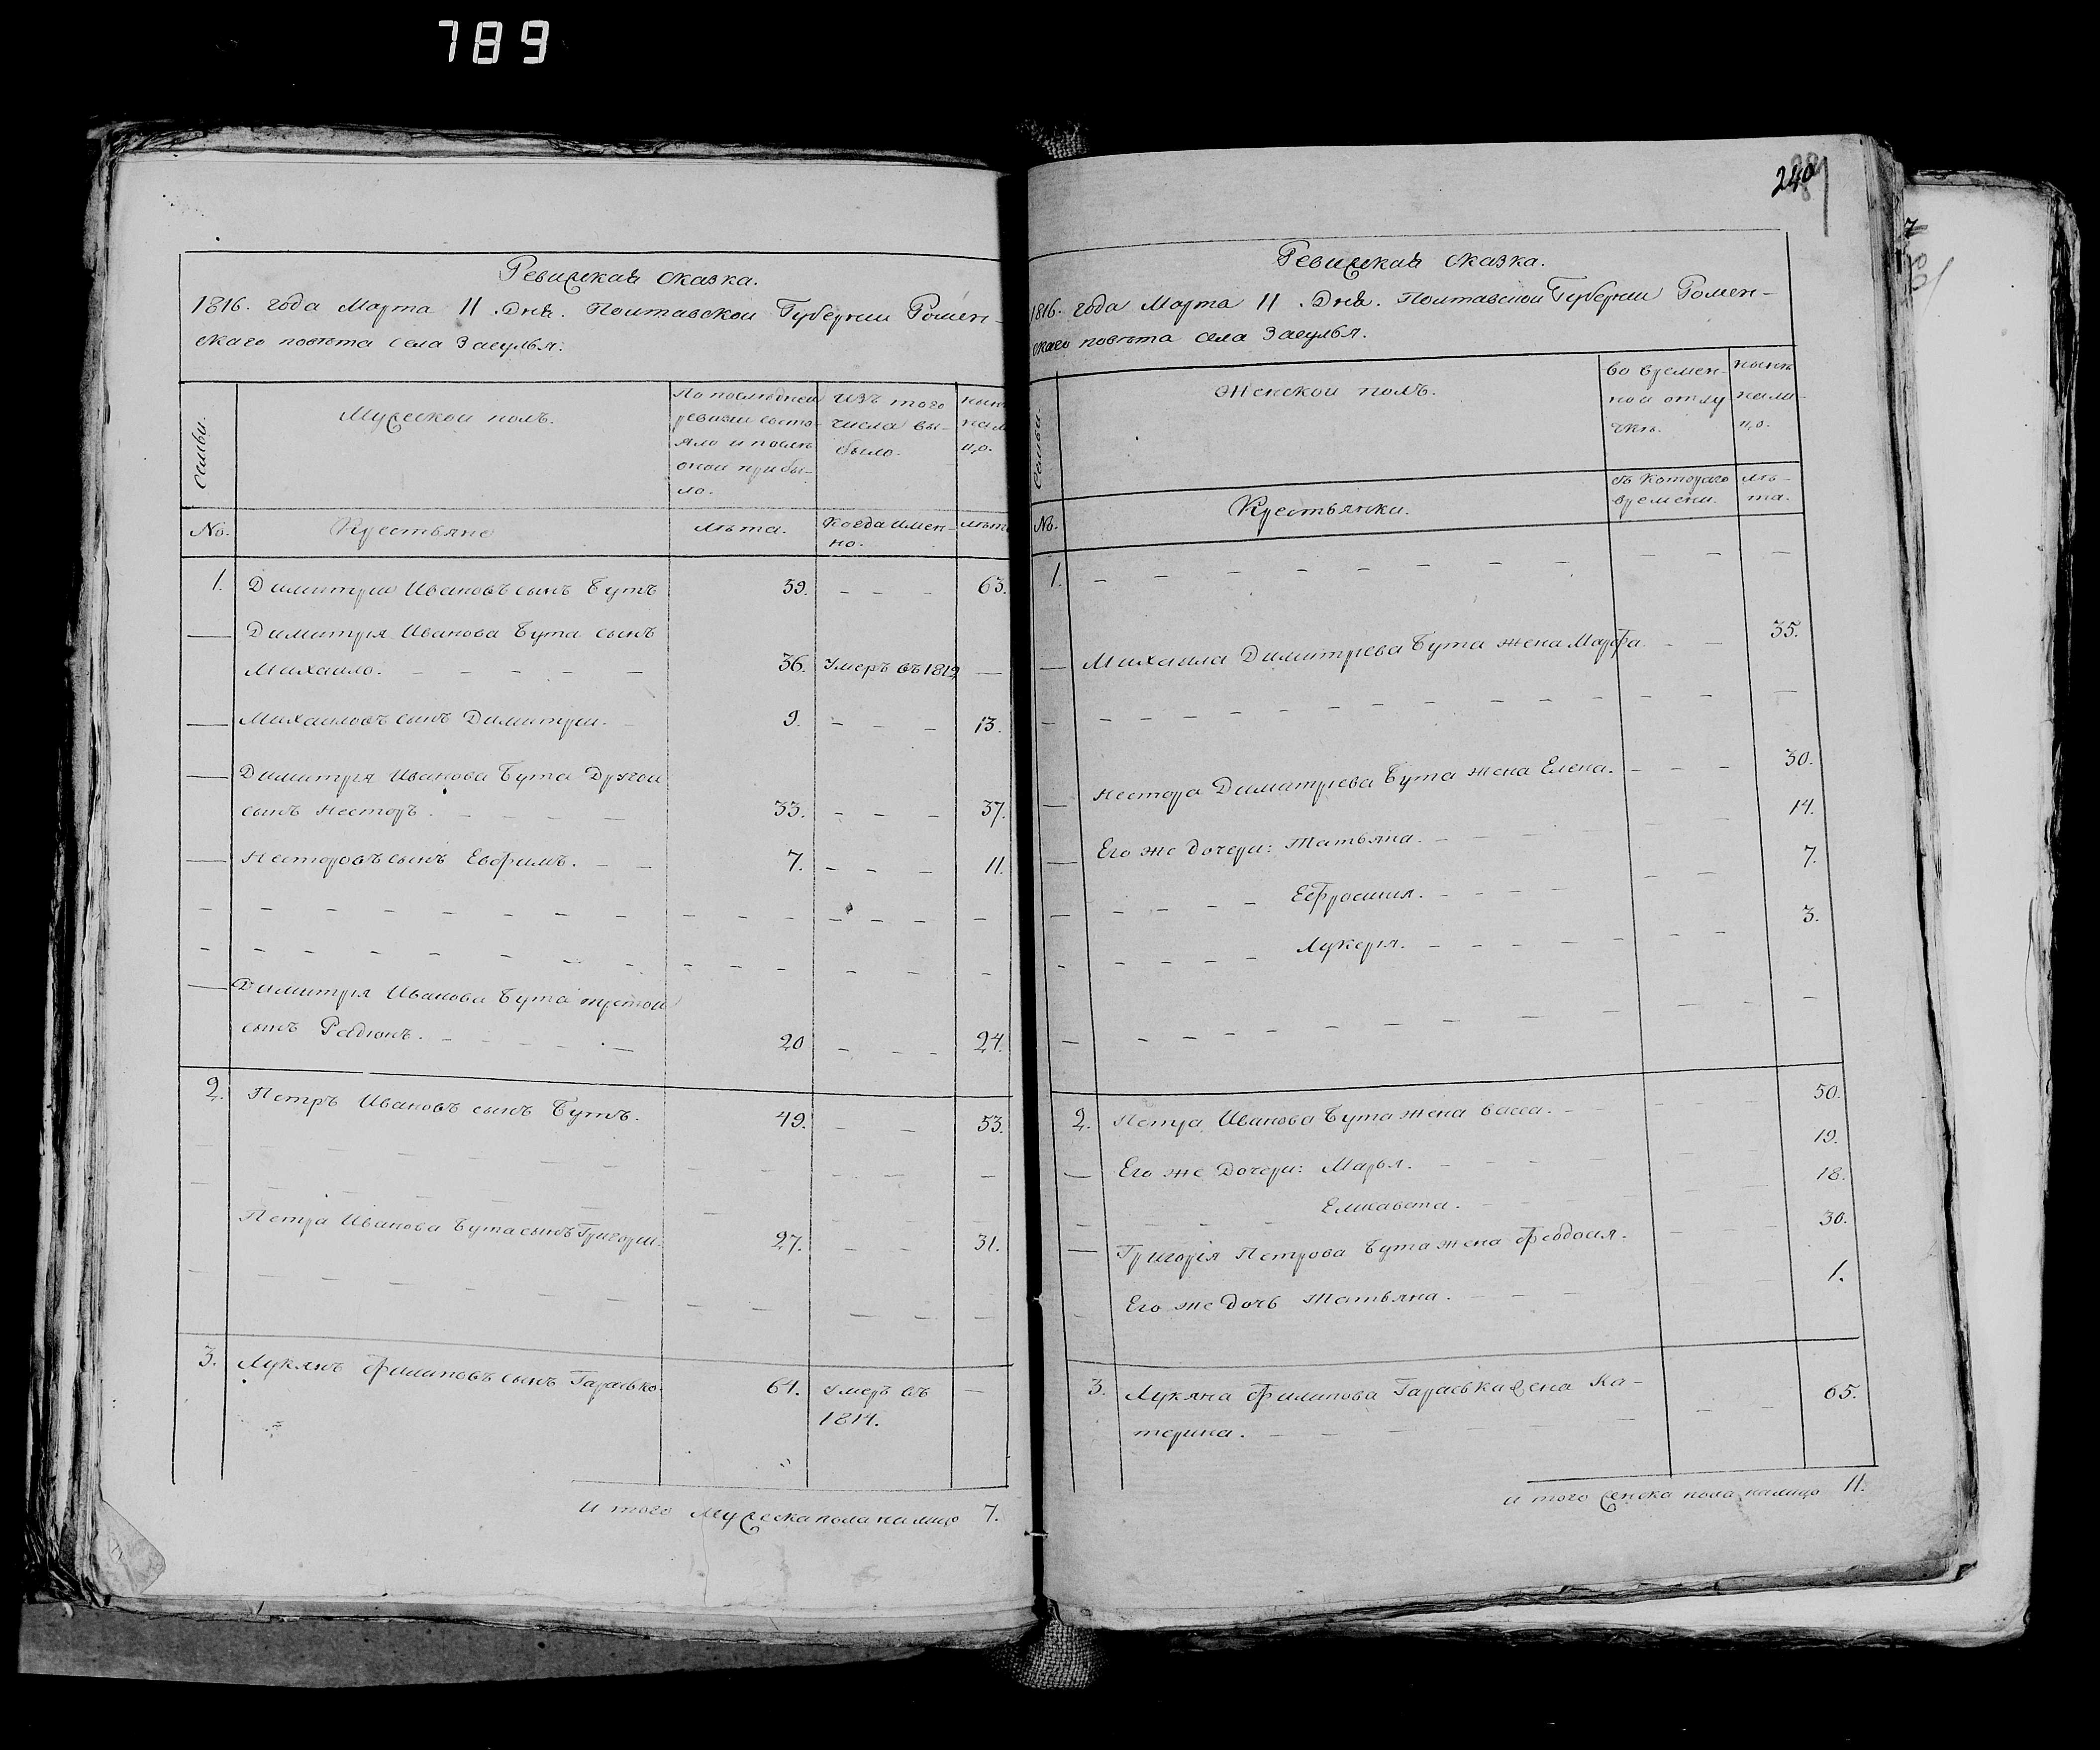 789
Ревижская сказка.
1816. года Марта 11 Дня. Полтавской Губернии Ромен-
скаго повѣта села Засулья.
Семьи.
Мужескои полъ.
По последней
ревизіи состо-
яло и после
оной прибы-
ло.
Изъ того
числа вы-
было.
ныне
нали
цо.
№.
Крестьяне
лѣта.
Когда имен-
но.
лѣта
1. Димитрий Ивановъ сынъ Бутъ 59. - - - 63.
Димитрія Иванова Бута сынъ
Михаило. - - - - - 36. Умеръ въ 1812 —
Михаиловъ сынъ Димитрий. - 9. - - - 13.
Димитрія Иванова Бута Другой
сынъ Несторъ. - - - - 33. - - - 37.
Несторовъ сынъ Евфимъ. - - 7. - - - 11.
Димитрія Иванова Бута третой
сынъ Радіонъ. - - - - 20 - - - 24.
2. Петръ Ивановъ сынъ Бутъ. 49. - - 53.
Петра Иванова Бута сынъ Григорій. 27. - - 31.
3. Лукянъ Филиповъ сынъ Гарасько. 61. Умеръ въ —
1814.
И того Мужеска пола налицо 7.
240
Ревижская сказка.
1816. года Марта 11 Дня. Полтавской Губернии Ромен-
скаго повѣта села Засулья.
Семьи.
Женской полъ.
во времен-
ной отлу
чкѣ.
ныне
нали-
цо.
№.
Крестьянки.
съ Котораго
времени.
лѣ-
та.
1. - - - - - - - - -
Михаила Димитрієва Бута жена Марфа. - - 35.
Нестора Димитрієва Бута жена Елена. - - - 30.
Его же дочери: Татьяна. - - 14.
Ефросинія. - - - - 7.
Лукерія. - - - - 3.
2. Петра Иванова Бута жена Васса. - - 50.
Его же Дочери: Марья. - - 19.
Елисавета. - - 18.
Григорія Петрова Бута жена Феодосія. - 30.
Его же Дочь Татьяна. - - 1.
3. Лукяна Филипова Гараськи жена Ка-
терина. - - - - 65.
и того женска пола налицо 11.